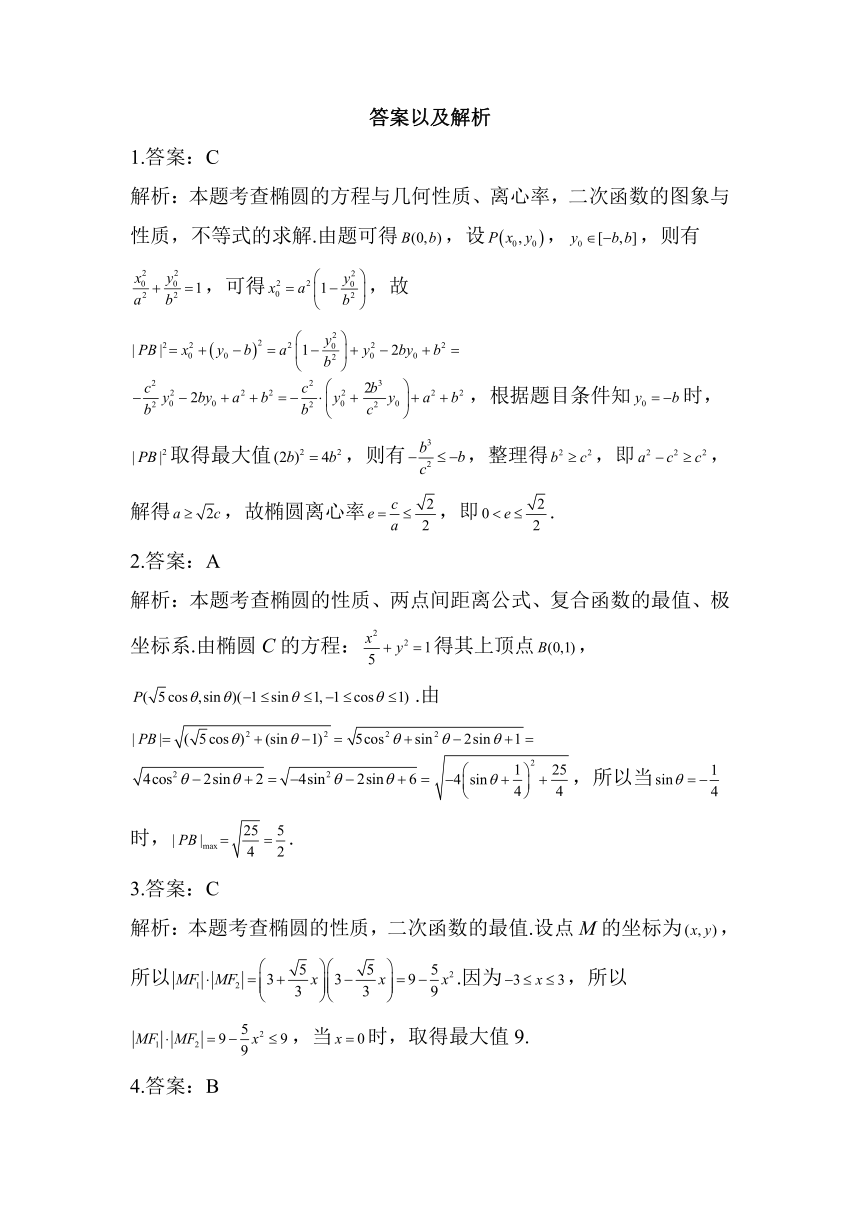 答案以及解析
1.答案：C
解析：本题考查椭圆的方程与几何性质、离心率，二次函数的图象与
性质，不等式的求解.由题可得 $B(0,b)$，设 $P(x_0,y_0)$，$y_0\in[-b,b]$，则有
$\frac{x_0^2}{a^2}+\frac{y_0^2}{b^2}=1$，可得 $x_0^2=a^2\left(1-\frac{y_0^2}{b^2}\right)$，故
$|PB|^2=x_0^2+(y_0-b)^2=a^2\left(1-\frac{y_0^2}{b^2}\right)+y_0^2-2by_0+b^2=$
$-\frac{c^2}{b^2}y_0^2-2by_0+a^2+b^2=-\frac{c^2}{b^2}\cdot\left(y_0^2+\frac{2b^3}{c^2}y_0\right)+a^2+b^2$，根据题目条件知 $y_0=-b$ 时，
$|PB|^2$ 取得最大值 $(2b)^2=4b^2$，则有 $-\frac{b^3}{c^2}\leq-b$，整理得 $b^2\geq c^2$，即 $a^2-c^2\geq c^2$，
解得 $a\geq\sqrt{2}c$，故椭圆离心率 $e=\frac{c}{a}\leq\frac{\sqrt{2}}{2}$，即 $0<e\leq\frac{\sqrt{2}}{2}$.
2.答案：A
解析：本题考查椭圆的性质、两点间距离公式、复合函数的最值、极
坐标系.由椭圆 C 的方程：$\frac{x^2}{5}+y^2=1$ 得其上顶点 $B(0,1)$，
$P(\sqrt{5}\cos\theta,\sin\theta)(-1\leq\sin\theta\leq1,-1\leq\cos\theta\leq1)$.由
$|PB|=\sqrt{(\sqrt{5}\cos\theta)^2+(\sin\theta-1)^2}=\sqrt{5\cos^2\theta+\sin^2\theta-2\sin\theta+1}=$
$\sqrt{4\cos^2\theta-2\sin\theta+2}=\sqrt{-4\sin^2\theta-2\sin\theta+6}=\sqrt{-4\left(\sin\theta+\frac{1}{4}\right)^2+\frac{25}{4}}$，所以当 $\sin\theta=-\frac{1}{4}$
时，$|PB|_{\max}=\sqrt{\frac{25}{4}}=\frac{5}{2}$.
3.答案：C
解析：本题考查椭圆的性质，二次函数的最值.设点 M 的坐标为 $(x,y)$，
所以 $|MF_1|\cdot|MF_2|=\left(3+\frac{\sqrt{5}}{3}x\right)\left(3-\frac{\sqrt{5}}{3}x\right)=9-\frac{5}{9}x^2$.因为 $-3\leq x\leq3$，所以
$|MF_1|\cdot|MF_2|=9-\frac{5}{9}x^2\leq9$，当 $x=0$ 时，取得最大值 9.
4.答案：B